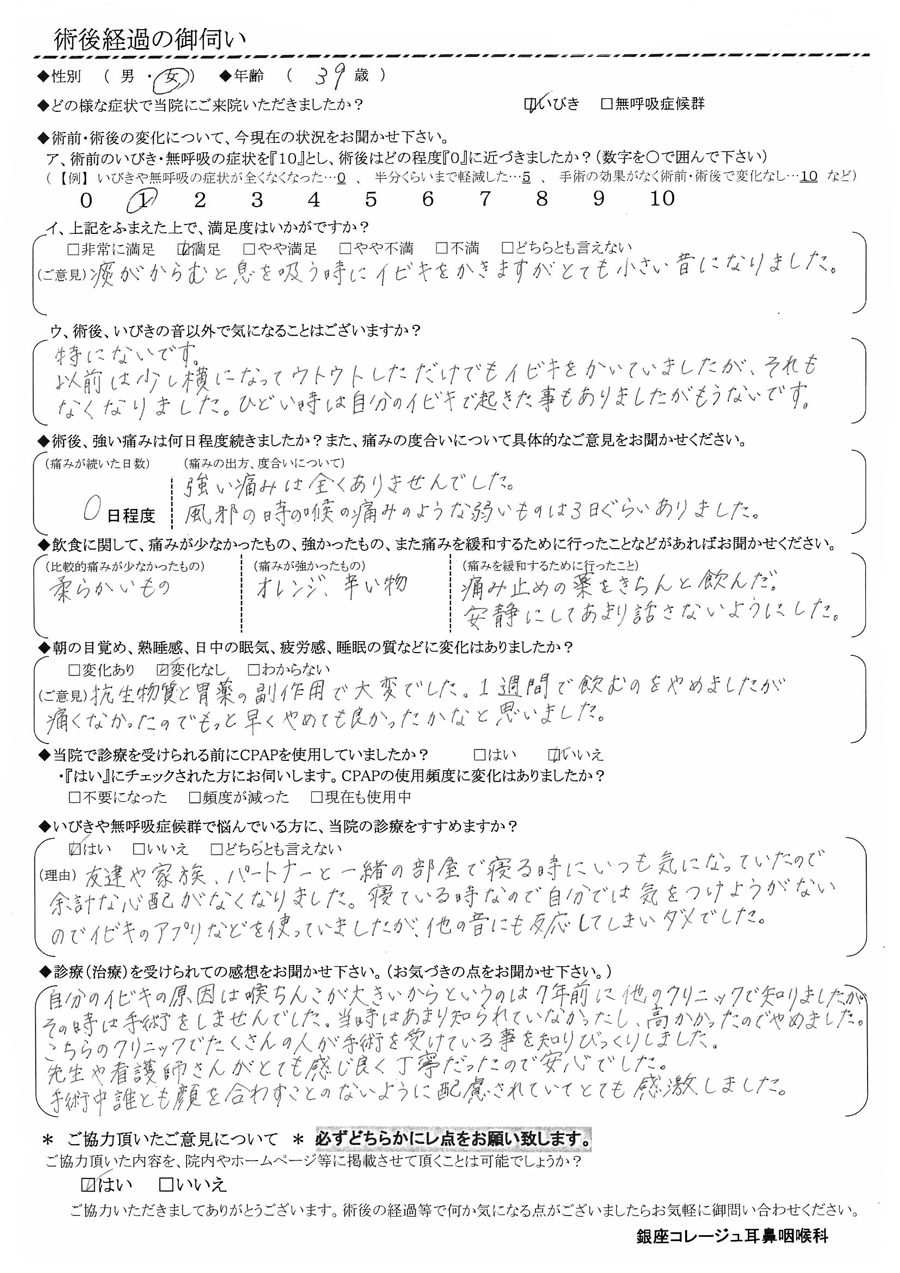 術後経過の御伺い
◆性別 （ 男 ・ 女 ） ◆年齢 （ 39 歳 ）
◆どの様な症状で当院にご来院いただきましたか？ ☑いびき □無呼吸症候群
◆術前・術後の変化について、今現在の状況をお聞かせ下さい。
ア、術前のいびき・無呼吸の症状を『10』とし、術後はどの程度『0』に近づきましたか？（数字を〇で囲んで下さい）
（ 【例】 いびきや無呼吸の症状が全くなくなった…0 、 半分くらいまで軽減した…5 、 手術の効果がなく術前・術後で変化なし…10 など）
0 1 2 3 4 5 6 7 8 9 10
イ、上記をふまえた上で、満足度はいかがですか？
□非常に満足 ☑満足 □やや満足 □やや不満 □不満 □どちらとも言えない
（ご意見） 痰がからむと息を吸う時にイビキをかきますがとても小さい音になりました。
ウ、術後、いびきの音以外で気になることはございますか？
特にないです。
以前は少し横になってウトウトしただけでもイビキをかいていましたが、それも
なくなりました。ひどい時は自分のイビキで起きた事もありましたがもうないです。
◆術後、強い痛みは何日程度続きましたか？また、痛みの度合いについて具体的なご意見をお聞かせください。
（痛みが続いた日数） （痛みの出方、度合いについて）
強い痛みは全くありませんでした。
0 日程度 風邪の時の喉の痛みのような弱いものは3日ぐらいありました。
◆飲食に関して、痛みが少なかったもの、強かったもの、また痛みを緩和するために行ったことなどがあればお聞かせください。
（比較的痛みが少なかったもの） （痛みが強かったもの） （痛みを緩和するために行ったこと）
柔らかいもの オレンジ、辛い物 痛み止めの薬をきちんと飲んだ。
安静にしてあまり話さないようにした。
◆朝の目覚め、熟睡感、日中の眠気、疲労感、睡眠の質などに変化はありましたか？
□変化あり ☑変化なし □わからない
（ご意見） 抗生物質と胃薬の副作用で大変でした。1週間で飲むのをやめましたが
痛くなかったのでもっと早くやめても良かったかなと思いました。
◆当院で診療を受けられる前にCPAPを使用していましたか？ □はい ☑いいえ
・『はい』にチェックされた方にお伺いします。CPAPの使用頻度に変化はありましたか？
□不要になった □頻度が減った □現在も使用中
◆いびきや無呼吸症候群で悩んでいる方に、当院の診療をすすめますか？
☑はい □いいえ □どちらとも言えない
（理由） 友達や家族、パートナーと一緒の部屋で寝る時にいつも気になっていたので
余計な心配がなくなりました。寝ている時なので自分では気をつけようがない
のでイビキのアプリなどを使っていましたが、他の音にも反応してしまいダメでした。
◆診療（治療）を受けられての感想をお聞かせ下さい。（お気づきの点をお聞かせ下さい。）
自分のイビキの原因は喉ちんこが大きいからというのは7年前に他のクリニックで知りましたが
その時は手術をしませんでした。当時はあまり知られていなかったし、高かかったのでやめました。
こちらのクリニックでたくさんの人が手術を受けている事を知りびっくりしました。
先生や看護師さんがとても感じ良く丁寧だったので安心でした。
手術中誰とも顔を合わすことのないように配慮されていてとても感激しました。
＊ ご協力頂いたご意見について ＊ 必ずどちらかにレ点をお願い致します。
ご協力頂いた内容を、院内やホームページ等に掲載させて頂くことは可能でしょうか？
☑はい □いいえ
ご協力いただきましてありがとうございます。術後の経過等で何か気になる点がございましたらお気軽に御問い合わせください。
銀座コレージュ耳鼻咽喉科